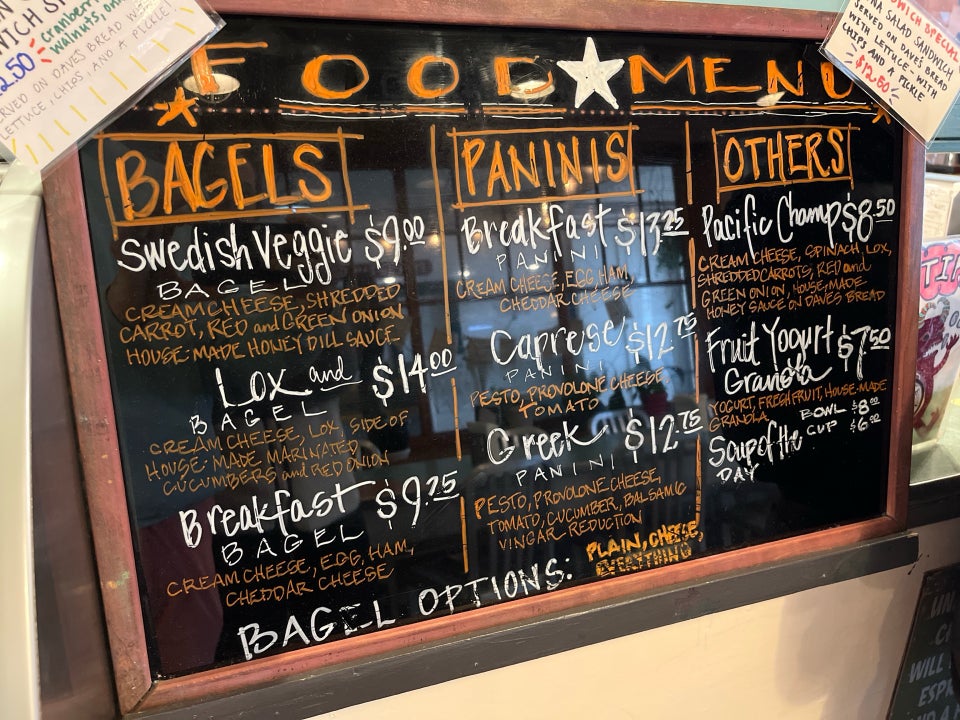 cranberry
walnuts, on
WICH SP
2.50
SERVED ON DAVES BREAD W
LETTUCE, CHIPS, AND A PICKLE!
WICH SPECIAL
NA SALAD SANDWICH
SERVED ON DAVE'S BREAD
WITH LETTUCE - WITH
CHIPS AND A PICKLE
$12.50
FOOD MENU
BAGELS
Swedish Veggie $9.00
BAGEL
CREAM CHEESE, SHREDDED
CARROT, RED and GREEN ONION
HOUSE-MADE HONEY DILL SAUCE
Lox and $14.00
BAGEL
CREAM CHEESE, LOX, SIDE OF
HOUSE-MADE MARINATED
CUCUMBERS and RED ONION
Breakfast $9.25
BAGEL
CREAM CHEESE, EGG, HAM,
CHEDDAR CHEESE
PANINIS
Breakfast $13.25
PANINI
CREAM CHEESE, EGG, HAM,
CHEDDAR CHEESE
Caprese $12.75
PANINI
PESTO, PROVOLONE CHEESE,
TOMATO
Greek $12.75
PANINI
PESTO, PROVOLONE CHEESE,
TOMATO, CUCUMBER, BALSAMIC
VINGAR REDUCTION
OTHERS
Pacific Champ $8.50
CREAM CHEESE, SPINACH, LOX,
SHREDDED CARROTS, RED and
GREEN ONION, HOUSE-MADE
HONEY SAUCE ON DAVES BREAD
Fruit Yogurt $7.50
Granola
YOGURT, FRESH FRUIT, HOUSE-MADE
GRANOLA
Soup of the BOWL $8.00
DAY CUP $6.00
BAGEL OPTIONS: PLAIN, CHEESE,
EVERYTHING
WILL